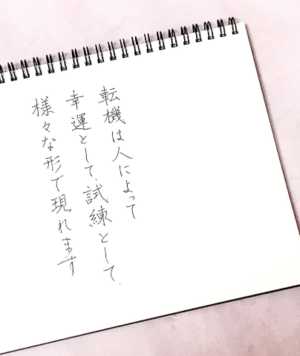 転機は人によって
幸運として、試練として、
様々な形で現れます